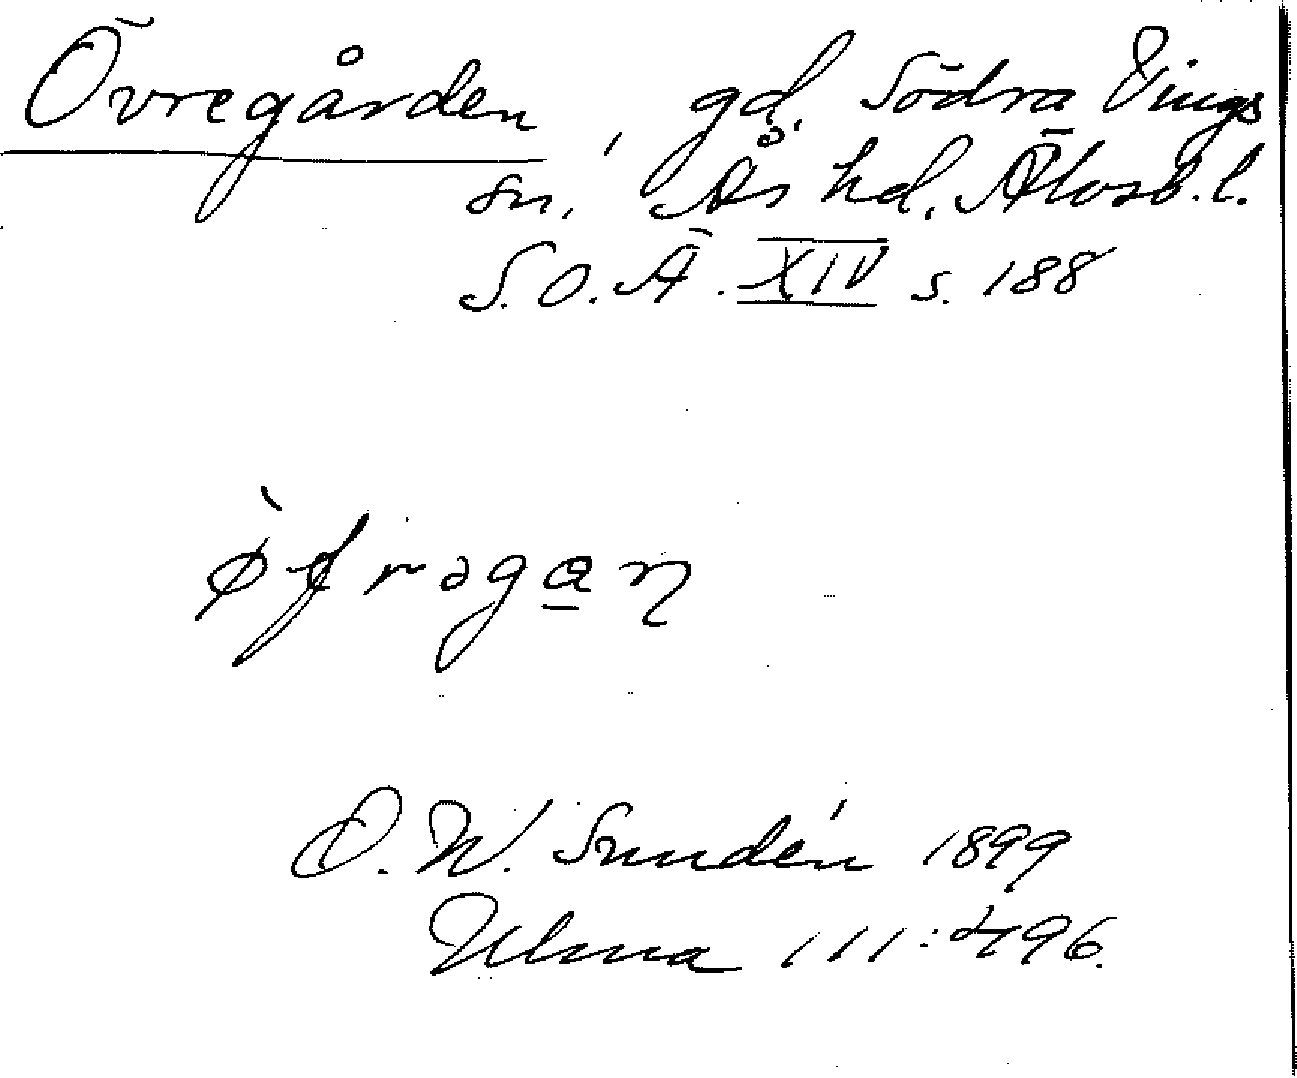 Övregården, gd. Södra Vings
sn, Ås hd. Älvsb.l.
S.O.Ä. XIV s. 188
ø̀frəga̲n
D. W. Sundén 1899
Ulma 111:496.